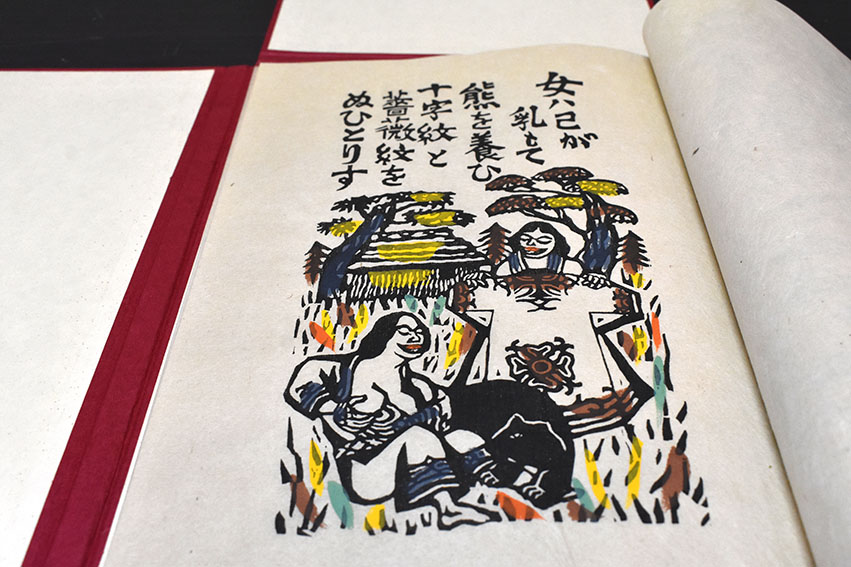 女ハ己が
乳もて
熊を養ひ
十字紋と
薔薇紋を
ぬひとりす